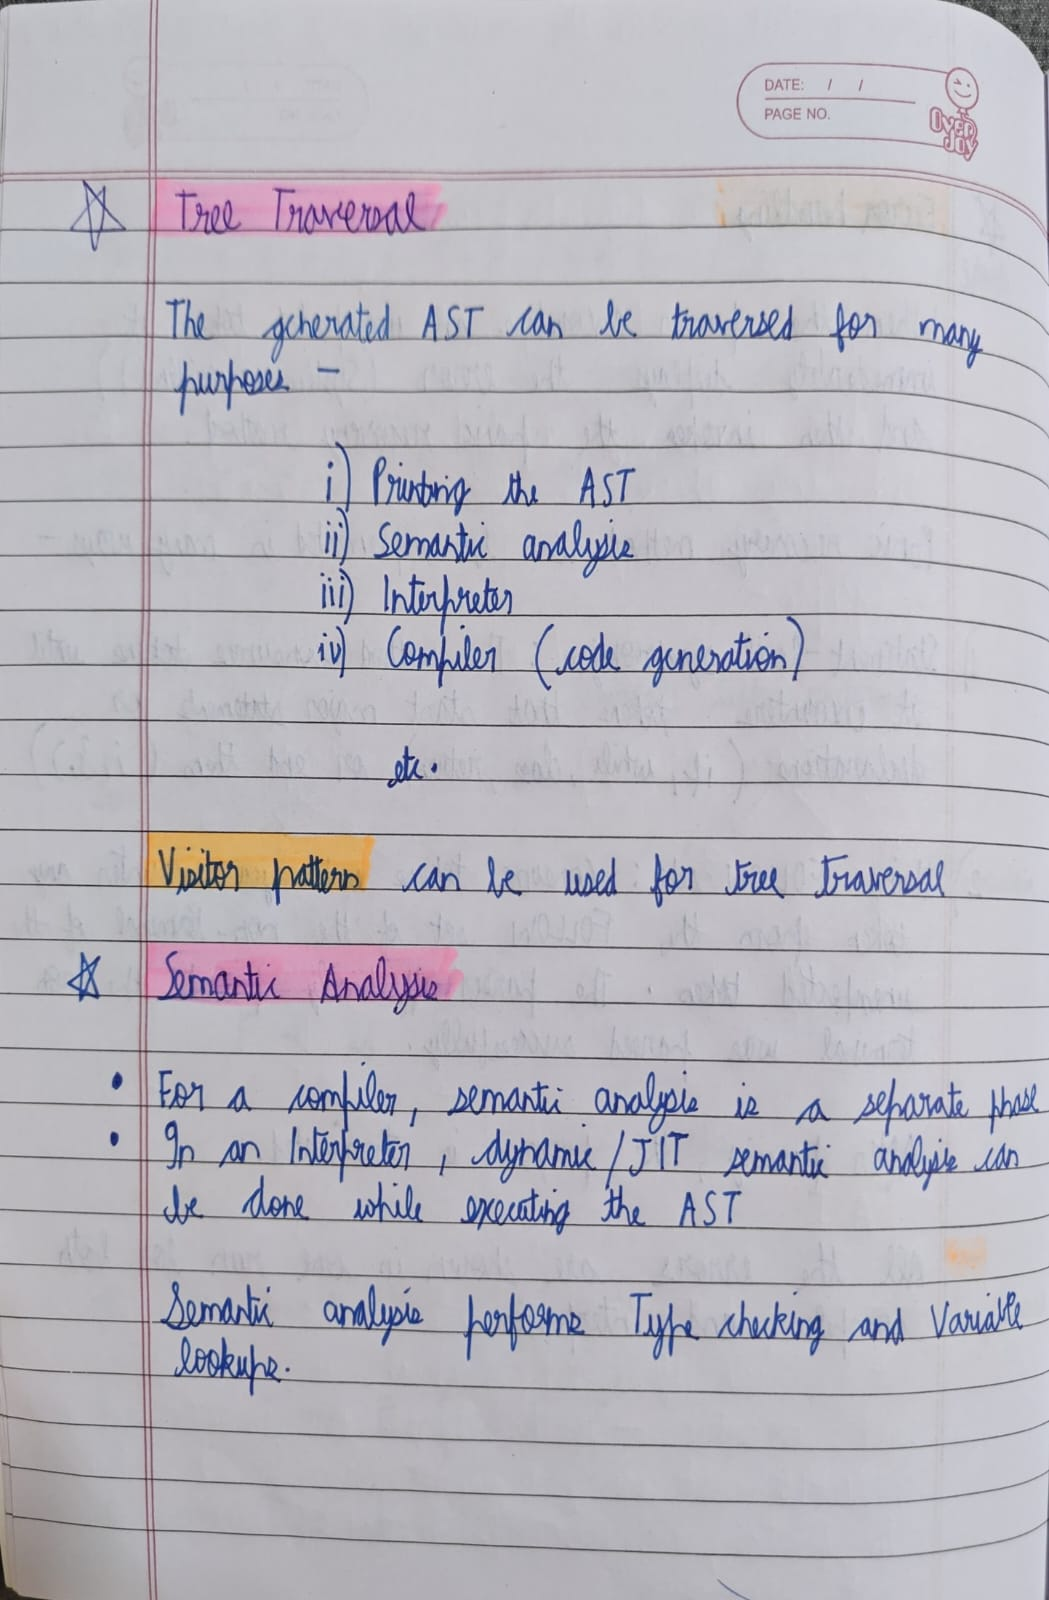 DATE: / /
PAGE NO.
OVER JOY
Tree Traversal
The generated AST can be traversed for many
purposes –
i) Printing the AST
ii) Semantic analysis
iii) Interpreter
iv) Compiler (code generation)
etc.
Visitor pattern can be used for tree traversal
Semantic Analysis
• For a compiler, semantic analysis is a separate phase
• In an Interpreter, dynamic/JIT semantic analysis can
be done while executing the AST
Semantic analysis performs Type checking and Variable
lookups.